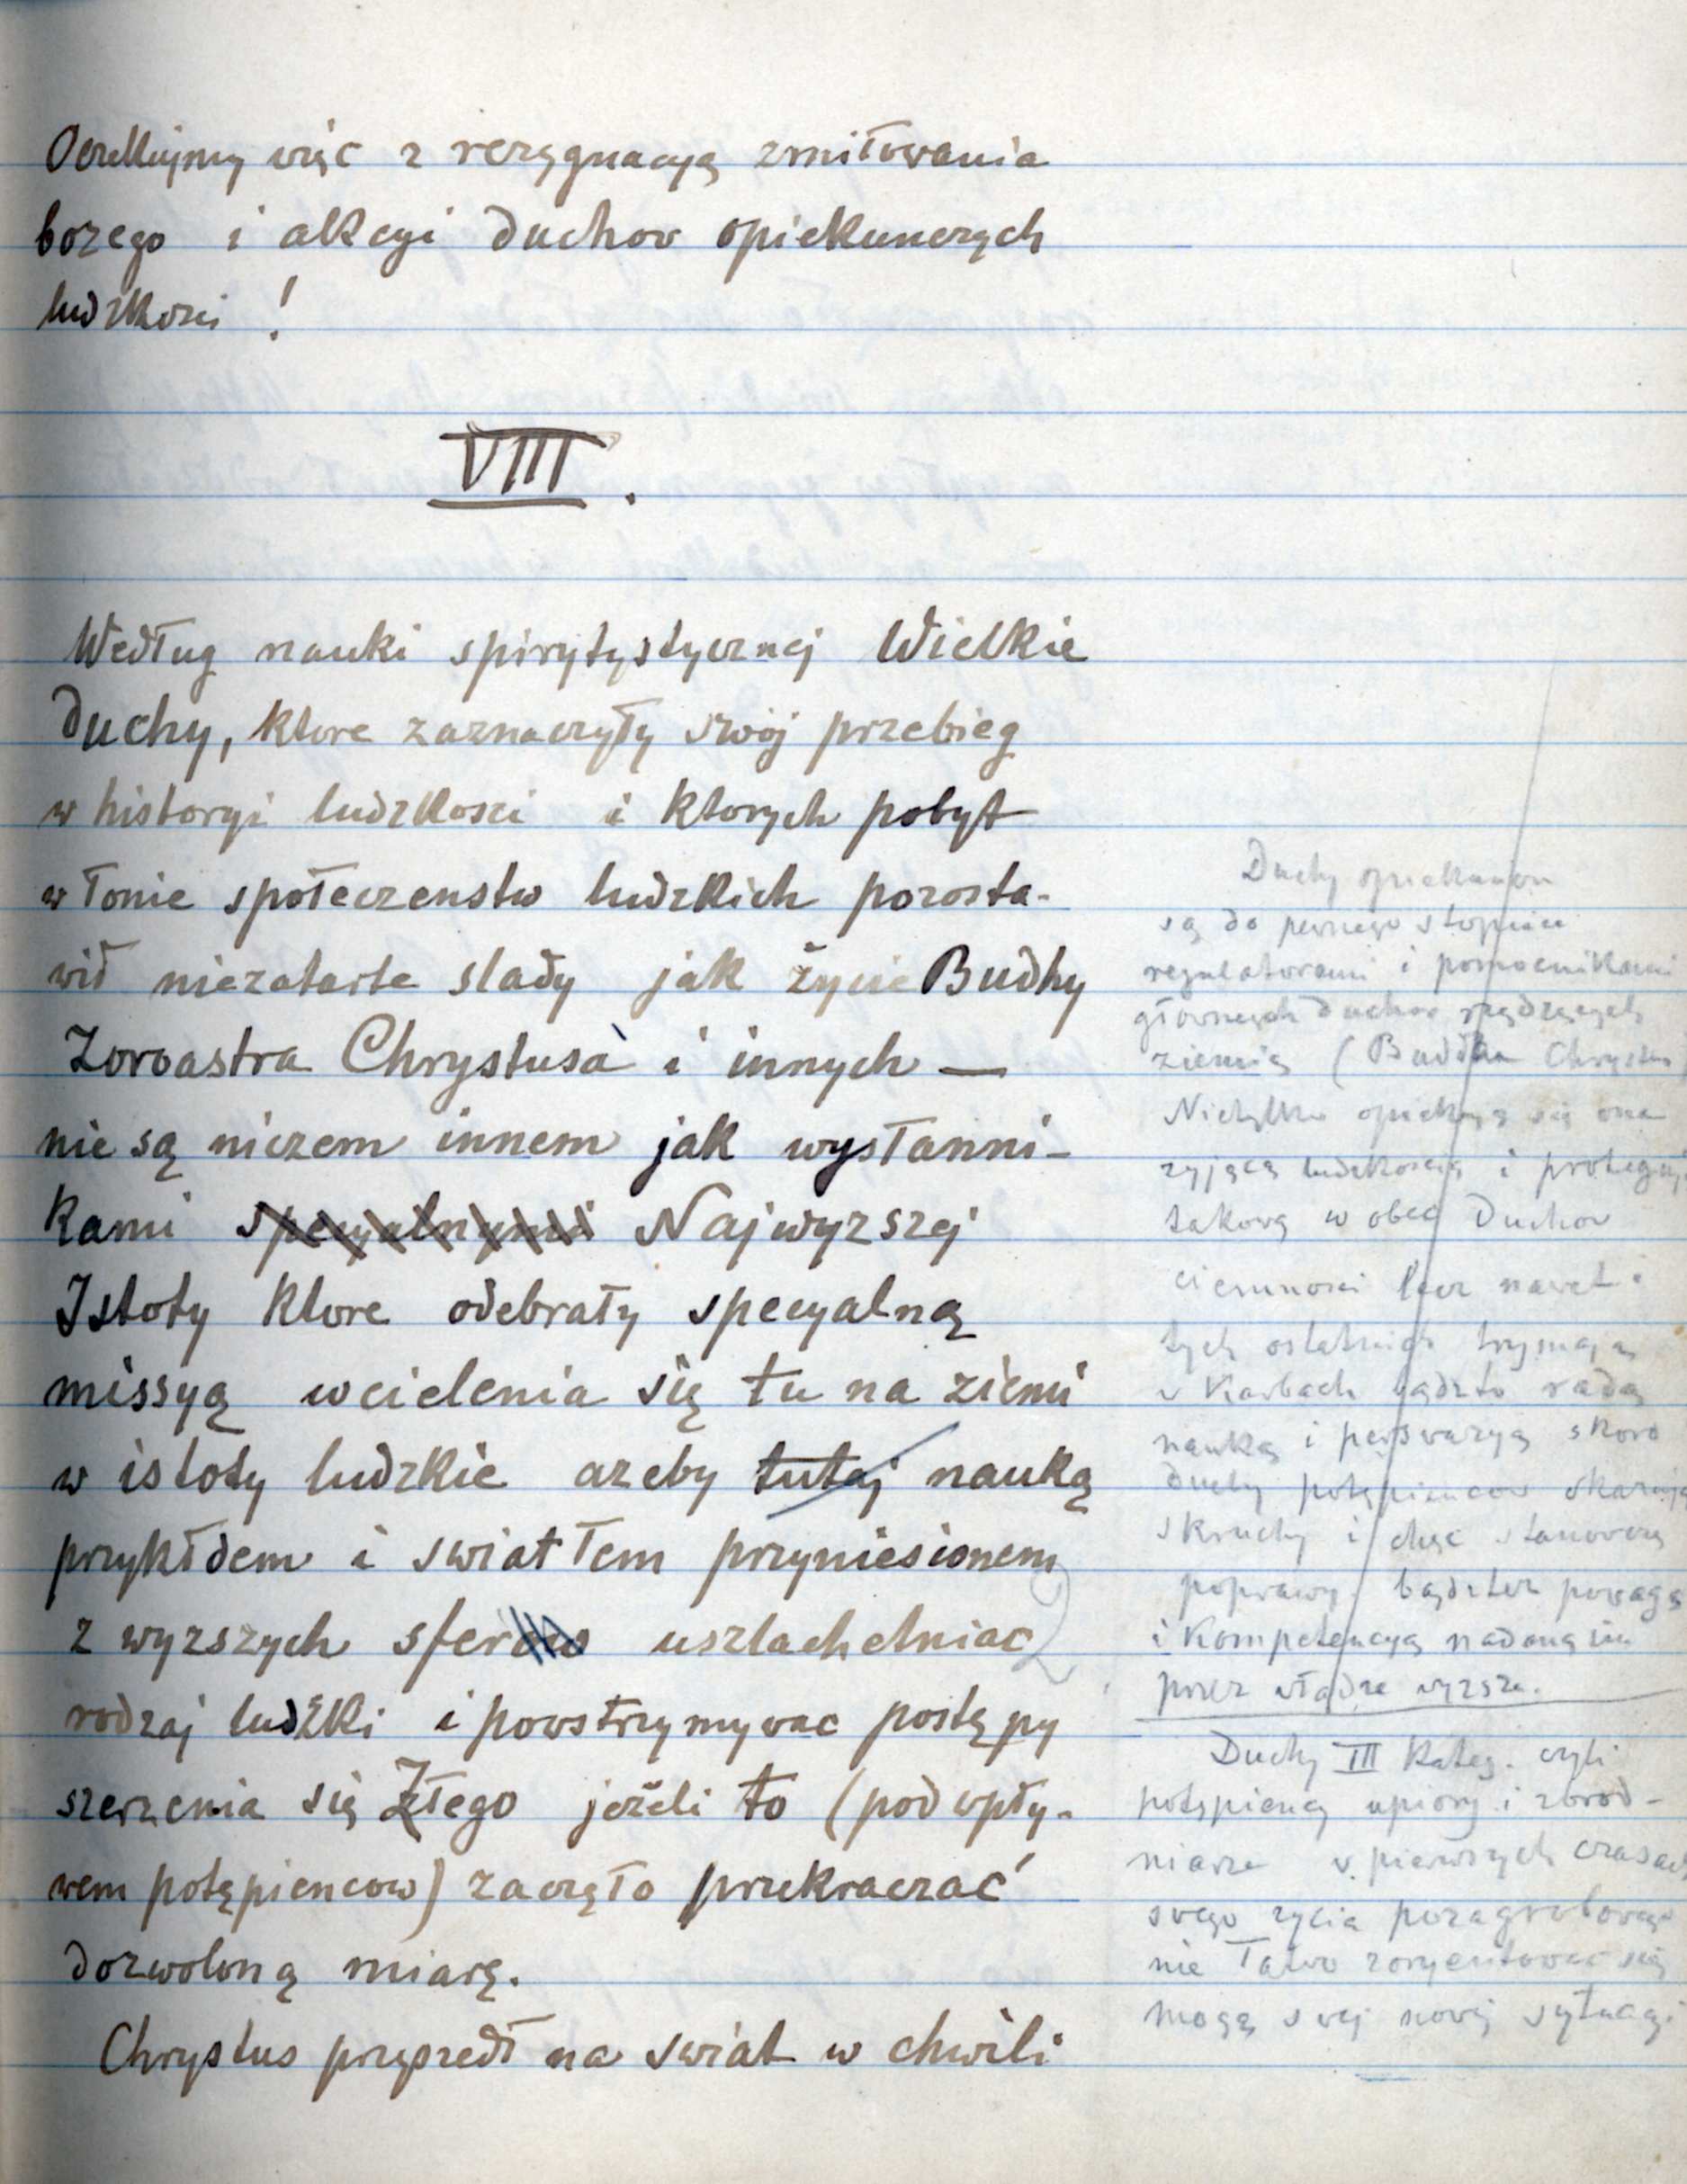 Oczekujmy więc z rezygnacyą zmiłowania
bozego i akcyi duchow opiekunczych
ludzkosci !
VIII.
Według nauki spirytystycznej Wielkie
duchy, ktore zaznaczyły swoj przebieg
w historyi ludzkosci i ktorych pobyt
w łonie społeczenstw ludzkich pozosta-
wił niezatarte slady jak życie Budhy
Zoroastra Chrystusa i innych —
nie są niczem innem jak wysłanni-
kami specyalnymi Najwyzszej
Istoty ktore odebrały specyalną
missyą wcielenia się tu na ziemi
w istoty ludzkie azeby tutaj nauką
przykłdem i swiatłem przyniesionem
z wyzszych sferach uszlachetniac
rodzaj ludzki i powstrzymywac postępy
szerzenia się Złego jeżeli to (pod wpły-
wem potępiencow) zaczęło przekraczać
dozwoloną miarę.
Chrystus przyszedł na swiat w chwili
Duchy opiekuncze
są do pewnego stopnia
regulatorami i pomocnikami
głownych duchow rządzących
ziemią (Buddha Chrystus
Nietylko opiekują się one
zyjącą ludzkoscią i protegują
takową w obec Duchow
ciemnosci lecz nawet i
tych ostatnich trzymają
w karbach bądzto radą
nauką i perswazyą skoro
duchy potępiencow okazują
skruchy i chęc stanowczą
poprawy. bądztez powagą
i kompetencyą nadaną im
przez władze wyzsze.
Duchy III kateg. czyli
potępiency upiory i zbrod-
niarze w pierwszych czasach
swego zycia pozagrobowego
nie łatwo zoryentowac się
mogą w swej nowej sytuacyi